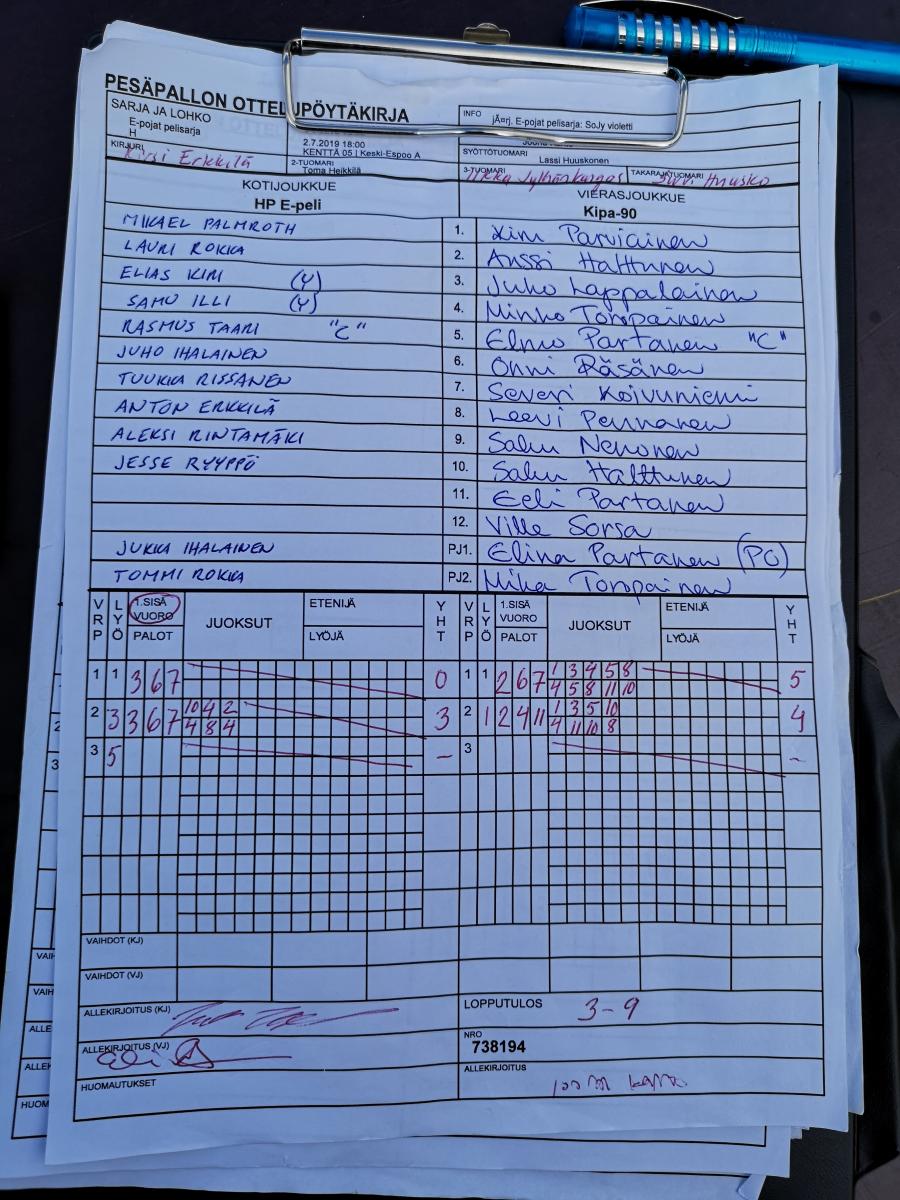 PESÄPALLON OTTELUPÖYTÄKIRJA
SARJA JA LOHKO
E-pojat pelisarja
H
INFO
jÄ¤rj. E-pojat pelisarja: SoJy violetti
KIRJURI
Kirsi Erkkilä
2.7.2019 18:00
KENTTÄ 05 | Keski-Espoo A
2-TUOMARI
Toma Heikkilä
SYÖTTÖTUOMARI
Lassi Huuskonen
3-TUOMARI
TAKARAJATUOMARI
KOTIJOUKKUE
HP E-peli
VIERASJOUKKUE
Kipa-90
MIKAEL PALMROTH 1. Kim Parviainen
LAURI ROKKA 2. Anssi Halttunen
ELIAS KIRI (Y) 3. Juho Lappalainen
SAMU ILLI (Y) 4. Minko Toropainen
RASMUS TAARI "C" 5. Elmo Partanen "C"
JUHO IHALAINEN 6. Onni Räsänen
TUUKKA RISSANEN 7. Severi Koivuniemi
ANTON ERKKILÄ 8. Leevi Pennanen
ALEKSI RINTAMÄKI 9. Saku Nenonen
JESSE RYYPPÖ 10. Saku Halttunen
11. Eeli Partanen
12. Ville Sorsa
JUKKA IHALAINEN PJ1. Elina Partanen (PO)
TOMMI ROKKA PJ2. Mika Toropainen
VRP LYÖ 1.SISÄ VUORO PALOT JUOKSUT ETENIJÄ LYÖJÄ YHT VRP LYÖ 1.SISÄ VUORO PALOT JUOKSUT ETENIJÄ LYÖJÄ YHT
1 1 3 6 7 0 1 1 2 6 7 1 3 4 5 8 5
4 5 8 11 10
2 3 3 6 7 10 4 2 3 2 1 2 4 11 1 3 5 10 4
4 8 4 4 11 10 8
3 5 - 3 -
VAIHDOT (KJ)
VAIHDOT (VJ)
ALLEKIRJOITUS (KJ)
LOPPUTULOS 3-9
ALLEKIRJOITUS (VJ)
NRO
738194
HUOMAUTUKSET
ALLEKIRJOITUS